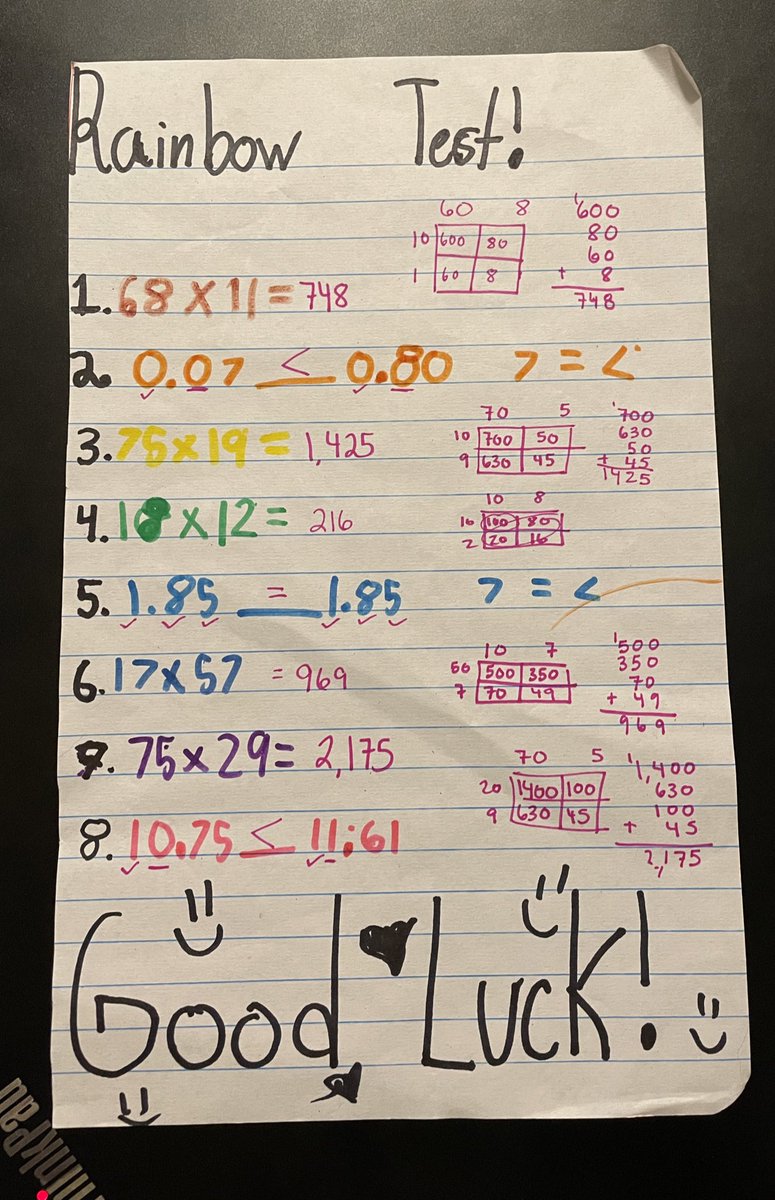 Rainbow Test!
60 8
10 600 80
1 60 8
1
600
80
60
+ 8
748
1. 68 x 11 = 748
2. 0.07 < 0.80 > = <
70 5
10 700 50
9 630 45
1
700
630
50
+ 45
1425
3. 75 x 19 = 1,425
10 8
10 100 80
2 20 16
4. 18 x 12 = 216
5. 1.85 = 1.85 > = <
10 7
50 500 350
7 70 49
1
500
350
70
+ 49
969
6. 17 x 57 = 969
70 5
20 1400 100
9 630 45
1
1,400
630
100
+ 45
2,175
7. 75 x 29 = 2,175
8. 10.75 < 11.61
Good Luck!